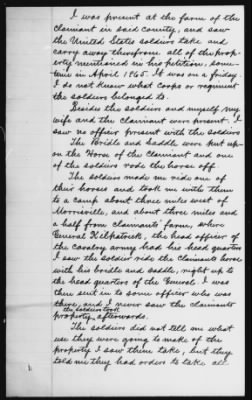 I was present at the farm of the
claimant in said County, and saw
the United States soldiers take and
carry away therefrom all of the prop-
erty mentioned in his petition, some-
time in April 1865. It was on a friday.
I do not know what corps or regiment
the soldiers belonged to.
Beside the soldiers and myself, my
wife and the claimant were present. I
saw no officer present with the soldiers
The Bridle and Saddle were put up-
on the Horse of the Claimant and one
of the soldiers rode the horse off.
The soldiers made me ride one of
their horses and took me with them
to a camp about three miles west of
Morrisville, and about three miles and
a half from claimants farm, where
General Kilpatrick, the head officer of
the cavalry army had his head quarters
I saw the soldier ride the Claimants horse
with his bridle and saddle, right up to
the head quarters of the General. I was
then sent in to some officer who was
there, and I never saw the claimants
the soldiers took
property, afterwards.
The soldiers did not tell me what
use they were going to make of the
property I saw them take, but they
told me they had orders to take all